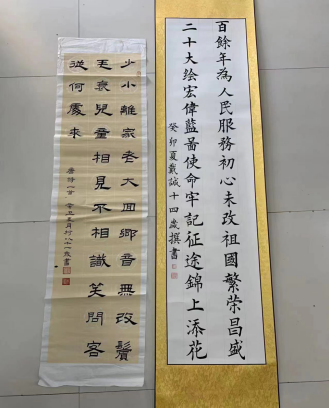 百餘年為人民服務初心未改祖國繁荣昌盛
二十大绘宏偉藍啚使命牢記征途錦上添花
癸卯夏戴誠十四歲撰書
少小離家老大回鄉音無改鬢
毛衰兒童相見不相識笑問客
從何處來
唐诗一首 辛丑 月 八十一 書